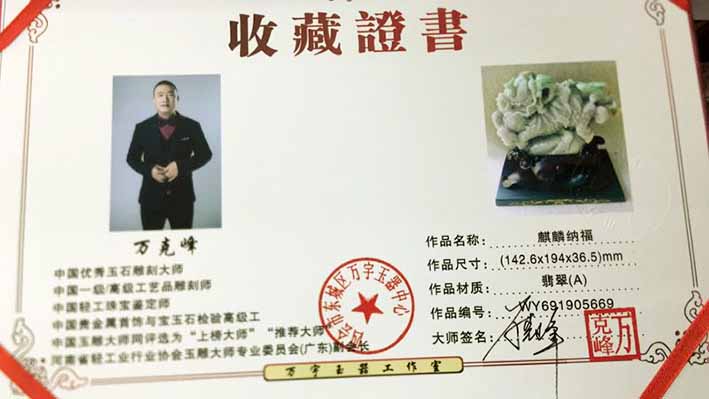 收藏證書
万克峰
中国优秀玉石雕刻大师
中国一级/高级工艺品雕刻师
中国轻工珠宝鉴定师
中国贵金属首饰与宝玉石检验高级工
中国玉雕大师网评选为“上榜大师”“推荐大师”
河南省轻工业行业协会玉雕大师专业委员会(广东)副会长
作品名称: 麒麟纳福
作品尺寸: (142.6x194x36.5)mm
作品材质: 翡翠(A)
作品编号: WY691905669
大师签名: 万克峰
万克峰
会市东城区万宇玉器中心
万宇玉器工作室